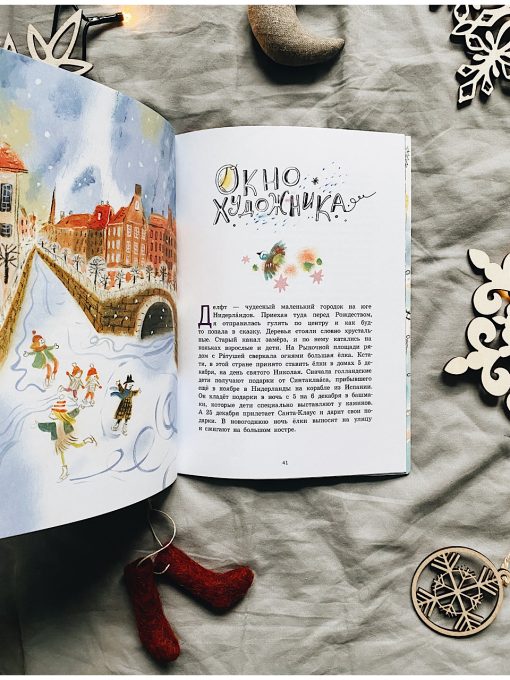 ОКНО
ХУДОЖНИКА
Делфт — чудесный маленький городок на юге
Нидерландов. Приехав туда перед Рождеством,
я отправилась гулять по центру и как буд-
то попала в сказку. Деревья стояли словно хрусталь-
ные. Старый канал замёрз, и по нему катались на
коньках взрослые и дети. На Рыночной площади ря-
дом с Ратушей сверкала огнями большая ёлка. Кста-
ти, в этой стране принято ставить ёлки в домах 5 де-
кабря, на день святого Николая. Сначала голландские
дети получают подарки от Синтаклааса, прибывшего
ещё в ноябре в Нидерланды на корабле из Испании.
Он кладёт подарки в ночь с 5 на 6 декабря в башма-
ки, которые дети специально выставляют у каминов.
А 25 декабря прилетает Санта-Клаус и дарит свои по-
дарки. В новогоднюю ночь ёлки выносят на улицу
и сжигают на большом костре.
41